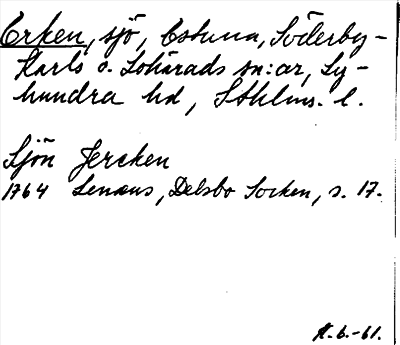 Erken, sjö, Estuna, Söderby-
Karls o. Lohärads sn:ar, Ly-
hundra hd, Sthlms. l.
Sjön Jercken
1764 Lenæus, Delsbo Socken, s. 17.
A.b.-61.